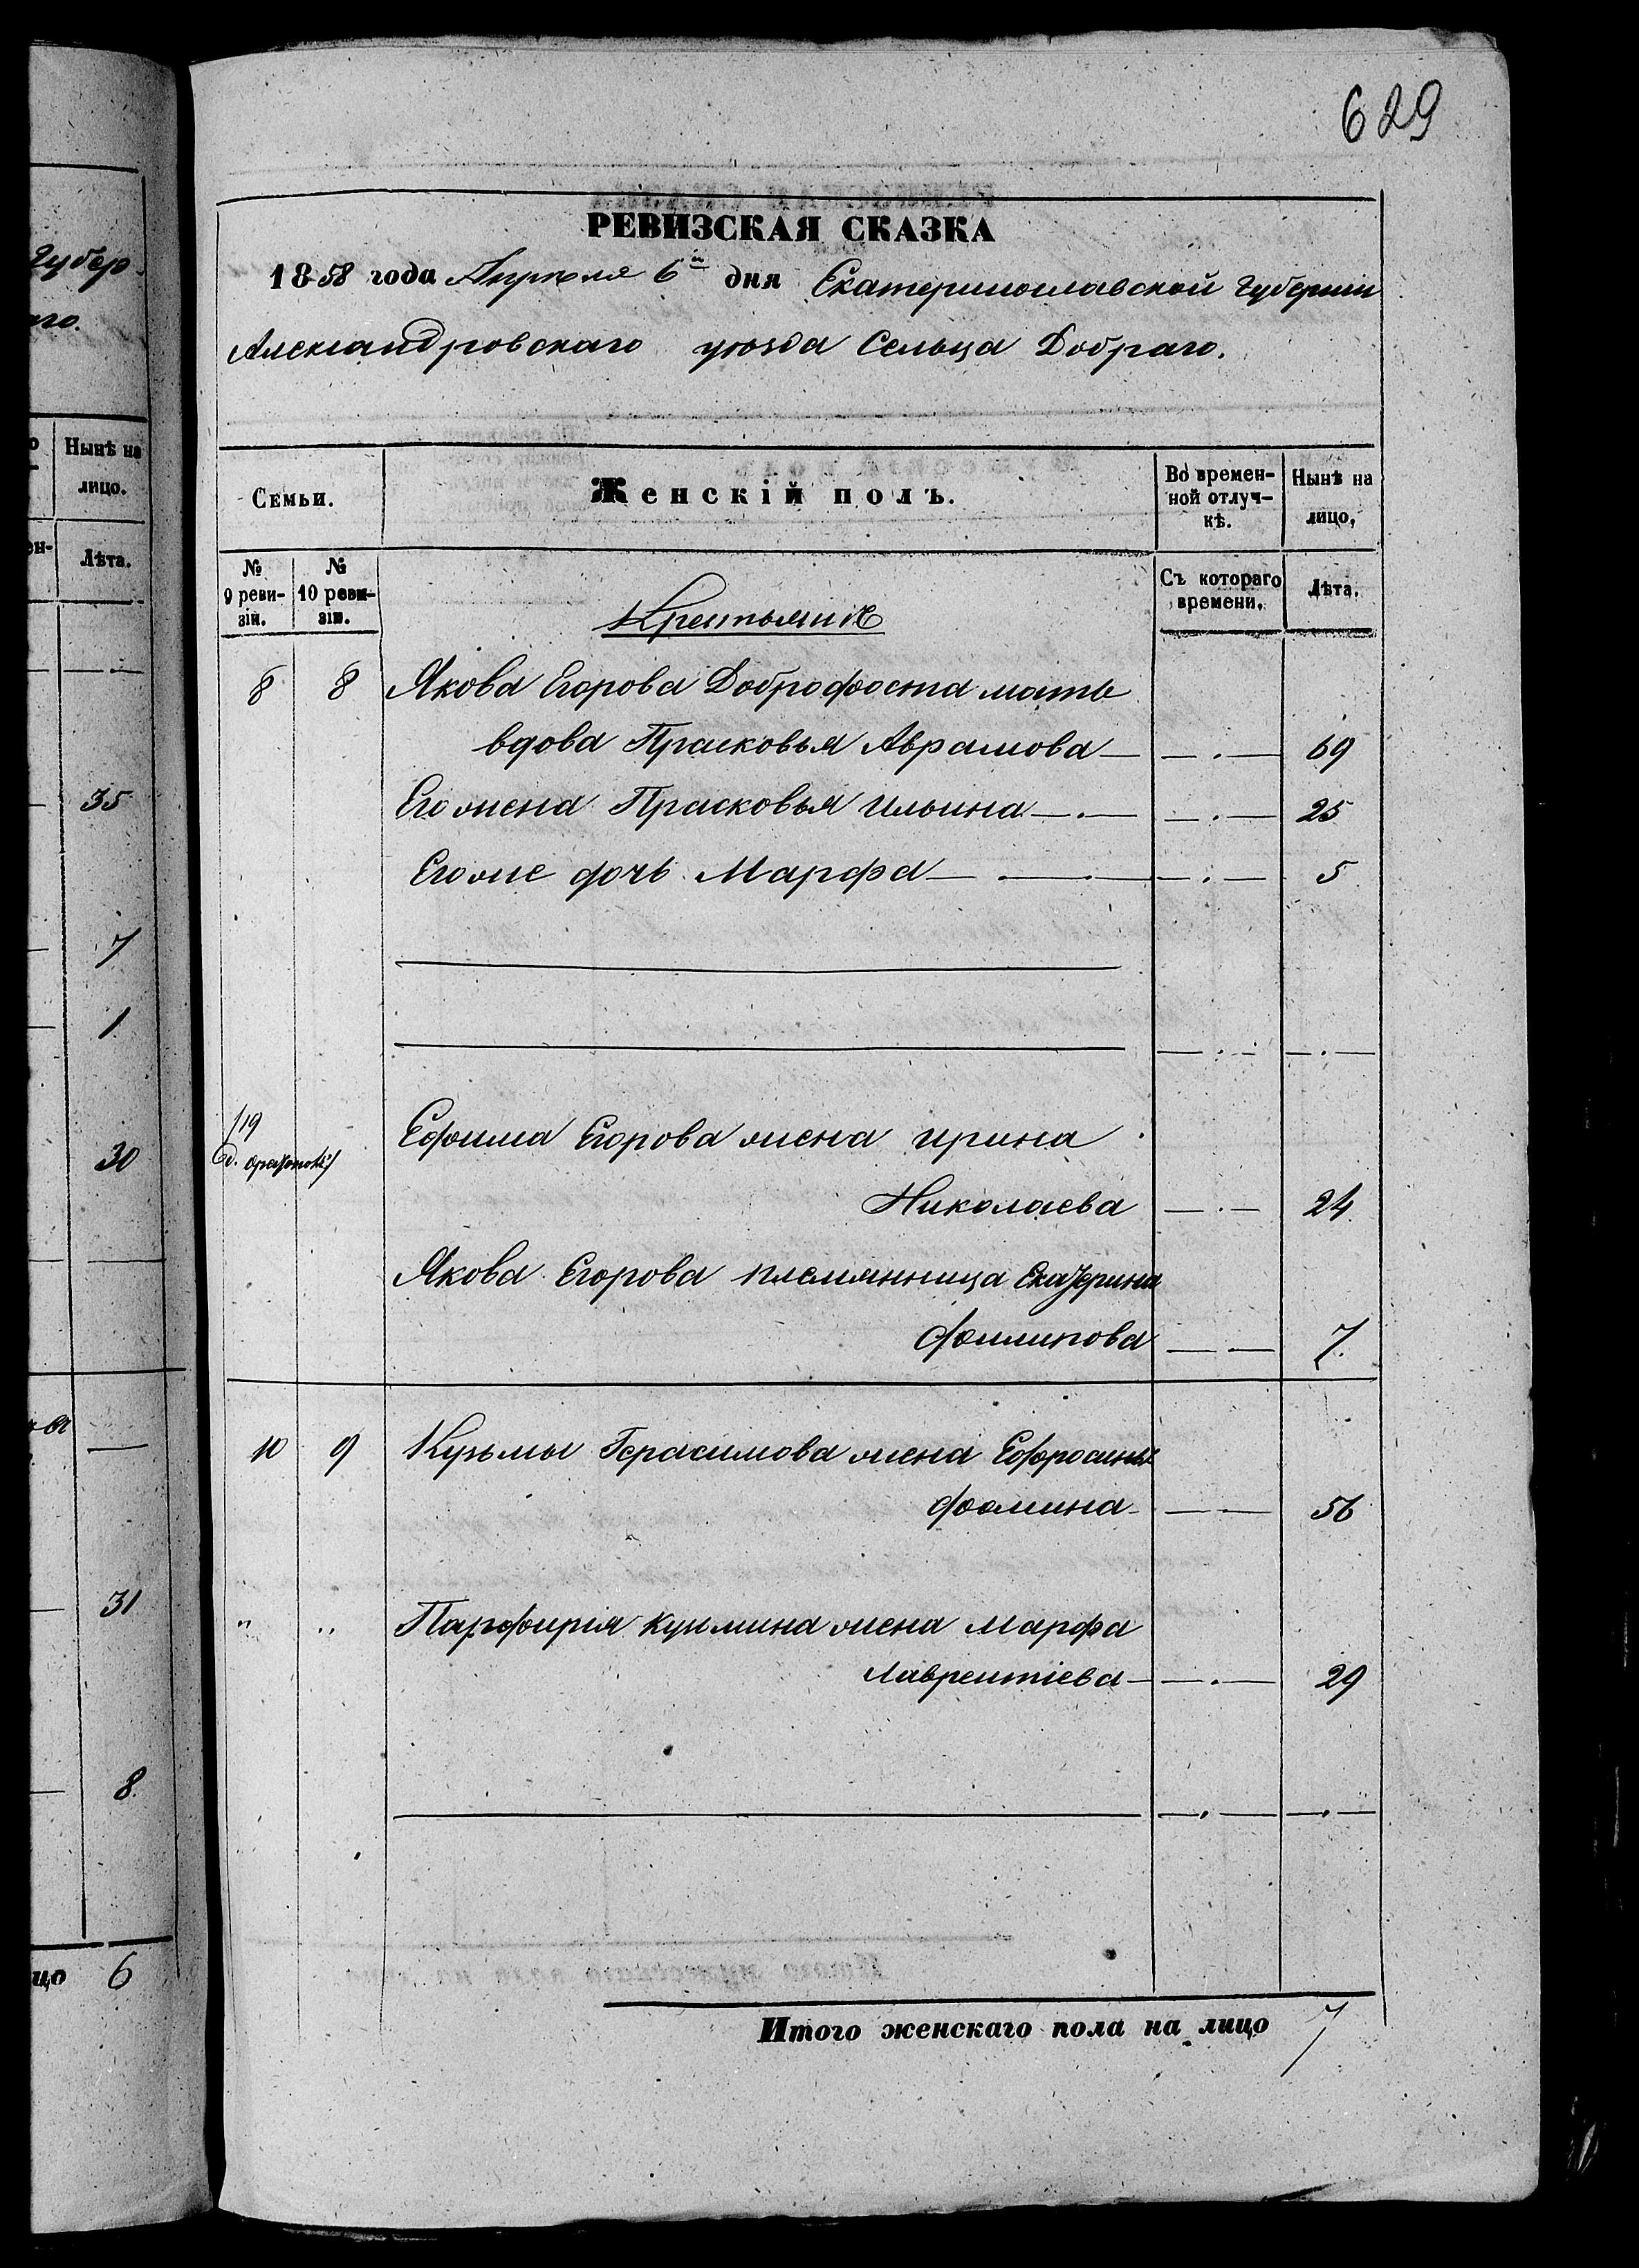 629
РЕВИЗСКАЯ СКАЗКА
1858 года Апреля 6го дня Екатеринославской Губернии
Александровскаго уезда Сельца Добраго.
Семьи.
Женскій полъ.
Во времен-
ной отлуч-
кѣ.
Нынѣ на
лицо,
№
9 реви-
зіи.
№
10 реви-
зіи.
Съ котораго
времени.
Лѣта.
Крестьяне
8 8 Якова Егорова Доброфоста мать
вдова Прасковья Аврамова — — . — 69
Его жена Прасковья Ильина — . — — . — 25
Егоже дочь Марфа — — . — 5
— . — — . —
/19
Ефима Егорова жена Ирина
Николаева — . — 24
Якова Егорова племянница Екатерина
Филипова — — 7.
10 9 Кузьмы Герасимова жена Ефросинья
Фомина — — 56
" " Парфирія Кузмина жена Марфа
Лаврентіева — — . — 29
— . — — . —
Итого женскаго пола на лицо 7
Губер
аго.
Нынѣ на
лицо.
Лѣта.
35
7
1
30
31
8
цо 6